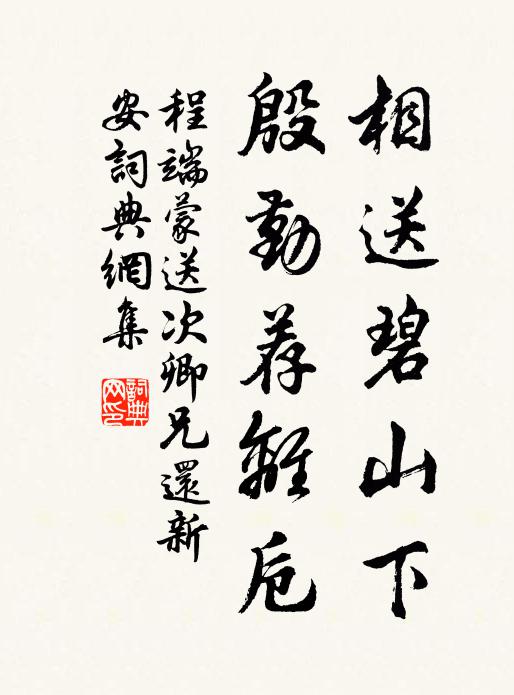 相送碧山下
殷勤荐離卮
程端蒙送次卿兄還新
安詞典網集
詞典网印